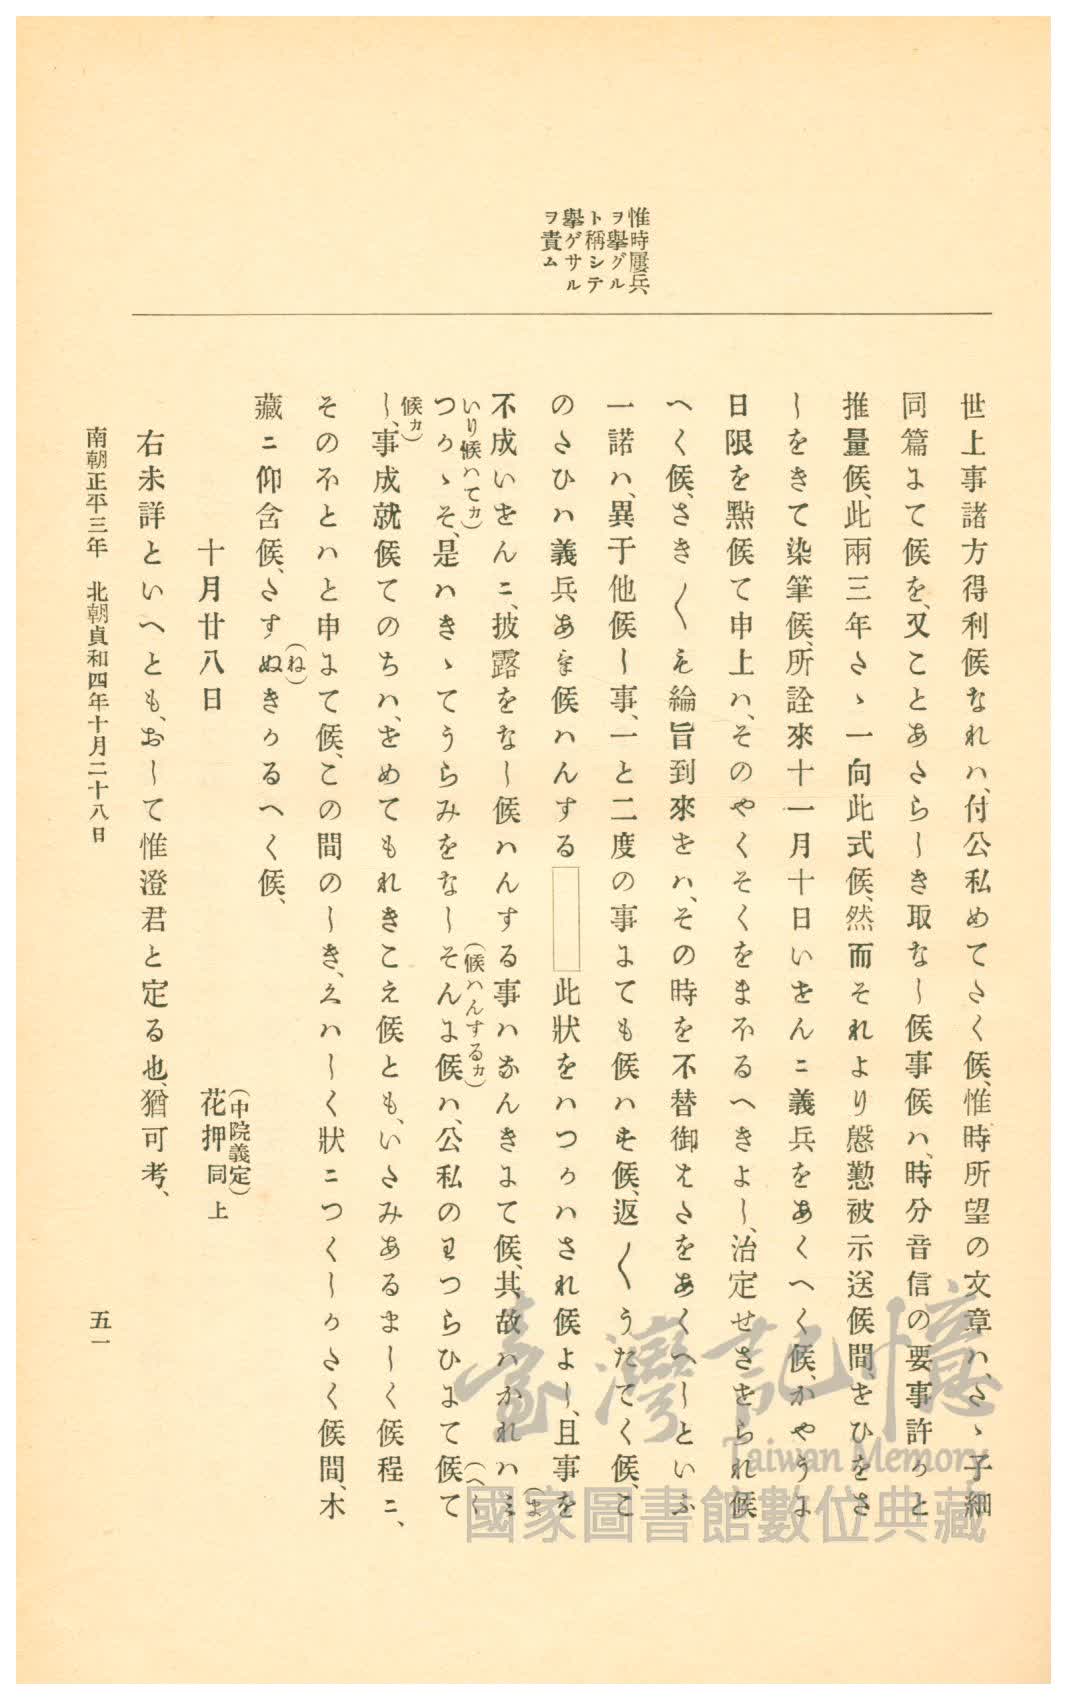 惟時屢兵、
ヲ擧グル
ト稱シテ
擧ゲサル
ヲ責ム
世上事諸方得利候なれハ、付公私めてたく候、惟時所望の文章ハ、たゝ子細
同篇にて候を、又ことあたらしき取なし候事候ハ、時分音信の要事許かと
推量候、此兩三年たゝ一向此式候、然而それより慇懃被示送候間、をひをさ
しをきて染筆候、所詮來十一月十日いせんニ義兵をあくへく候、かやうに
日限を點候て申上ハ、そのやくそくをまほるへきよし、治定せさせられ候
へく候、さき〳〵も綸旨到來せハ、その時を不替御はたをあくへしといふ
一諾ハ、異于他候し事、一と二度の事にても候ハす候、返〳〵うたてく候、こ
のたひハ義兵あけ候ハんする
此狀をハつかハされ候よし、且事を
(ま
不成いせんニ、披露をなし候ハんする事ハなんきにて候、其故ハかれハミ
いり候ハてカ)
(候ハんするカ)
つかゝそ、是ハきゝてうらみをなしそんに候ハ、公私のわつらひにて候て
(へく
候カ)
し、事成就候てのちハ、せめてもれきこえ候とも、いたみあるましく候程ニ、
そのほとハと申にて候、この間のしき、くハしく狀ニつくしかたく候間、木
(ね)
藏ニ仰含候、たすぬきかるへく候、
十月廿八日
(中院義定)
花押同上
右未詳といへとも、おして惟澄君と定る也、猶可考、
南朝正平三年　北朝貞和四年十月二十八日
五一
臺灣記憶
Taiwan Memory
國家圖書館數位典藏